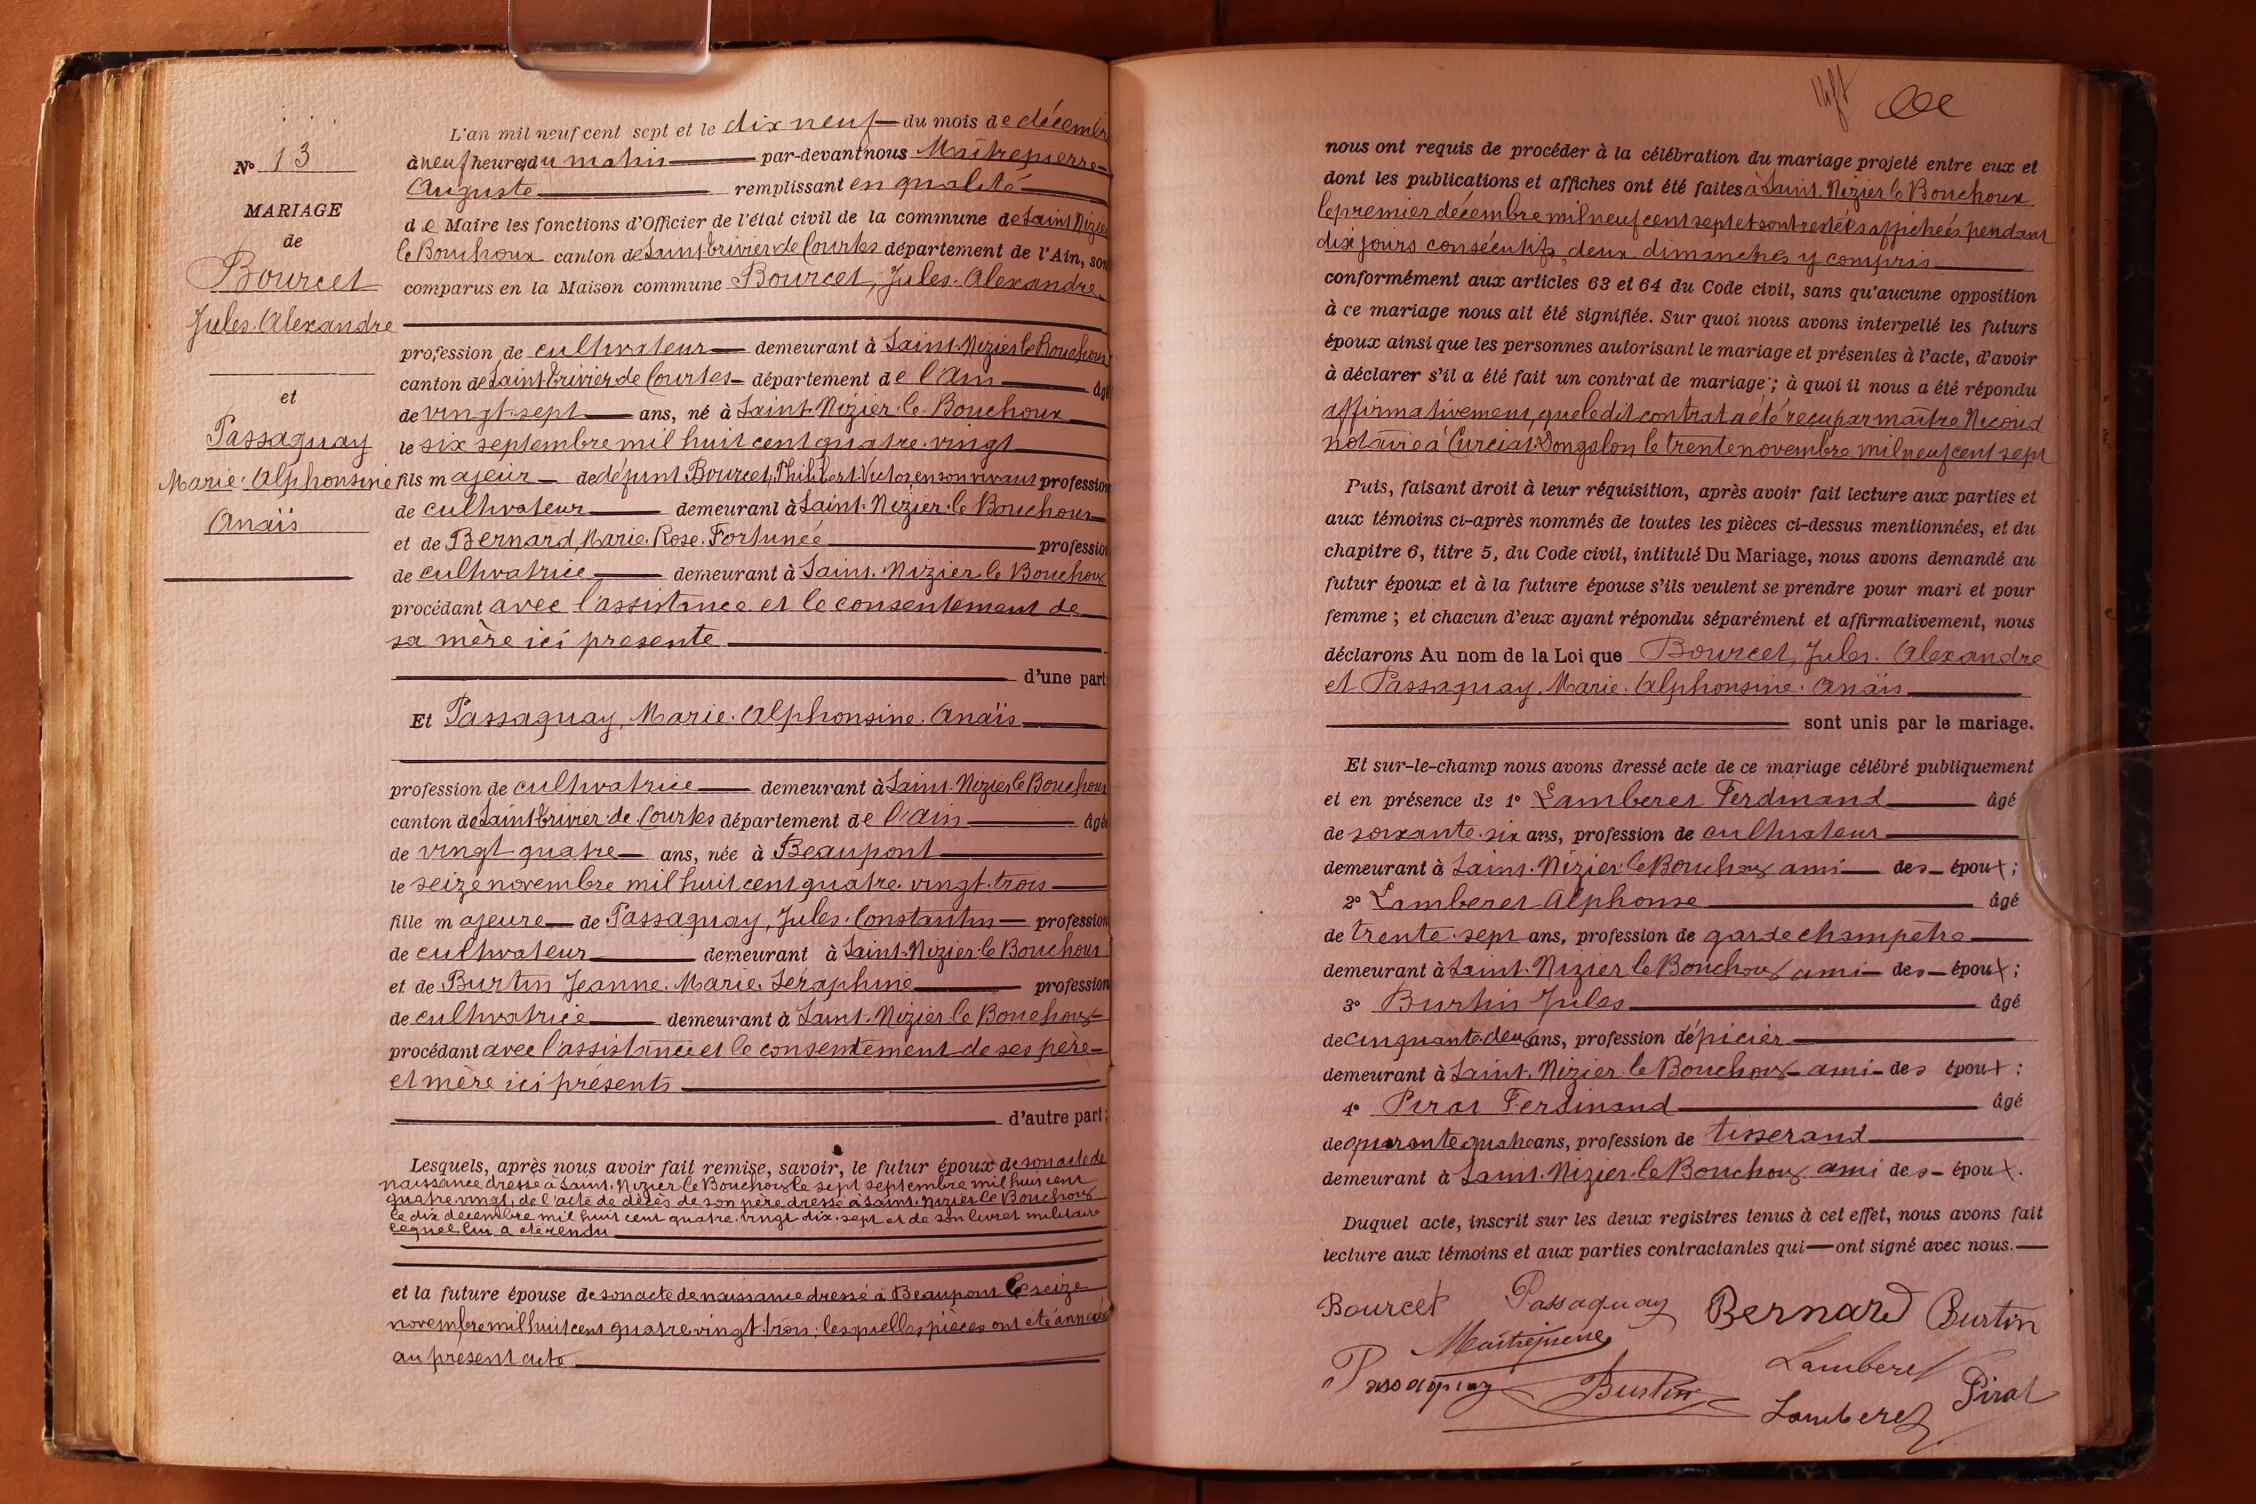 L'an mil neuf cent sept et le dix neuf du mois de décembre
à neuf heures du matin par-devant nous Maîtrepierre
Auguste remplissant en qualité
de Maire les fonctions d'Officier de l'état civil de la commune de Saint Nizier
le Bouchoux canton de Saint Trivier de Courtes département de l'Ain, son
comparus en la Maison commune Bourcet, Jules. Alexandre
profession de cultivateur demeurant à Saint. Nizier le Bouchoux
canton de Saint Trivier de Courtes département de l'Ain âgé
de vingt. sept ans, né à Saint. Nizier. le Bouchoux
le six septembre mil huit cent quatre. vingt
fils majeur de défunt Bourcet, Philibert. Victor en son vivant profession
de cultivateur demeurant à Saint. Nizier. le Bouchoux
et de Bernard, Marie. Rose. Fortunée profession
de cultivatrice demeurant à Saint. Nizier le Bouchoux
procédant avec l'assistance et le consentement de
sa mère ici presente
d'une part
Et Passaquay, Marie. Alphonsine. Anaïs
profession de cultivatrice demeurant à Saint. Nizier le Bouchoux
canton de Saint Trivier de Courtes département de l'Ain âgée
de vingt quatre ans, née à Beaupont
le seize novembre mil huit cent quatre. vingt. trois
fille majeure de Passaquay, Jules. Constantin profession
de cultivateur demeurant à Saint. Nizier. le Bouchoux
et de Burtin Jeanne. Marie. Séraphine profession
de cultivatrice demeurant à Saint. Nizier le Bouchoux
procédant avec l'assistance et le consentement de ses père
et mère ici présents
d'autre part;
Lesquels, après nous avoir fait remise, savoir, le futur époux de son acte de
naissance dressé à Saint. Nizier le Bouchoux le sept septembre mil huit cent
quatre vingt, de l'acte de décès de son père dressé à Saint. Nizier le Bouchoux
le dix décembre mil huit cent quatre. vingt dix. sept et de son livret militaire
lequel lui a été rendu
et la future épouse de son acte de naissance dressé à Beaupont le seize
novembre mil huit cent quatre vingt. trois; lesquelles pièces ont été annexées
au présent acte
No 13
MARIAGE
de
Bourcet
Jules. Alexandre
et
Passaquay
Marie. Alphonsine
Anaïs
nous ont requis de procéder à la célébration du mariage projeté entre eux et
dont les publications et affiches ont été faites à Saint. Nizier le Bouchoux
le premier décembre mil neuf cent sept et sont restées affichées pendant
dix jours consécutifs, deux dimanches y compris
conformément aux articles 63 et 64 du Code civil, sans qu'aucune opposition
à ce mariage nous ait été signifiée. Sur quoi nous avons interpellé les futurs
époux ainsi que les personnes autorisant le mariage et présentes à l'acte, d'avoir
à déclarer s'il a été fait un contrat de mariage; à quoi il nous a été répondu
affirmativement, que ledit contrat a été reçu par maître Nicoud
notaire à Curciat. Dongalon le trente novembre mil neuf cent sept
Puis, faisant droit à leur réquisition, après avoir fait lecture aux parties et
aux témoins ci-après nommés de toutes les pièces ci-dessus mentionnées, et du
chapitre 6, titre 5, du Code civil, intitulé Du Mariage, nous avons demandé au
futur époux et à la future épouse s'ils veulent se prendre pour mari et pour
femme ; et chacun d'eux ayant répondu séparément et affirmativement, nous
déclarons Au nom de la Loi que Bourcet, Jules. Alexandre
et Passaquay, Marie. Alphonsine. Anaïs
sont unis par le mariage.
Et sur-le-champ nous avons dressé acte de ce mariage célébré publiquement
et en présence de 1° Lamberet Ferdinand âgé
de soixante. six ans, profession de cultivateur
demeurant à Saint. Nizier. le Bouchoux ami des époux ;
2° Lamberet Alphonse âgé
de trente. sept ans, profession de garde champêtre
demeurant à Saint. Nizier le Bouchoux ami des époux ;
3° Burtin Jules âgé
de cinquante. deux ans, profession d'épicier
demeurant à Saint. Nizier le Bouchoux ami des époux ;
4° Pirat Ferdinand âgé
de quarante quatre ans, profession de tisserand
demeurant à Saint. Nizier. le Bouchoux ami des époux.
Duquel acte, inscrit sur les deux registres tenus à cet effet, nous avons fait
lecture aux témoins et aux parties contractantes qui ont signé avec nous.
Bourcet Passaquay Bernard Burtin
Maitrepierre Lamberet
Passaquay Burtin Lamberet Pirat